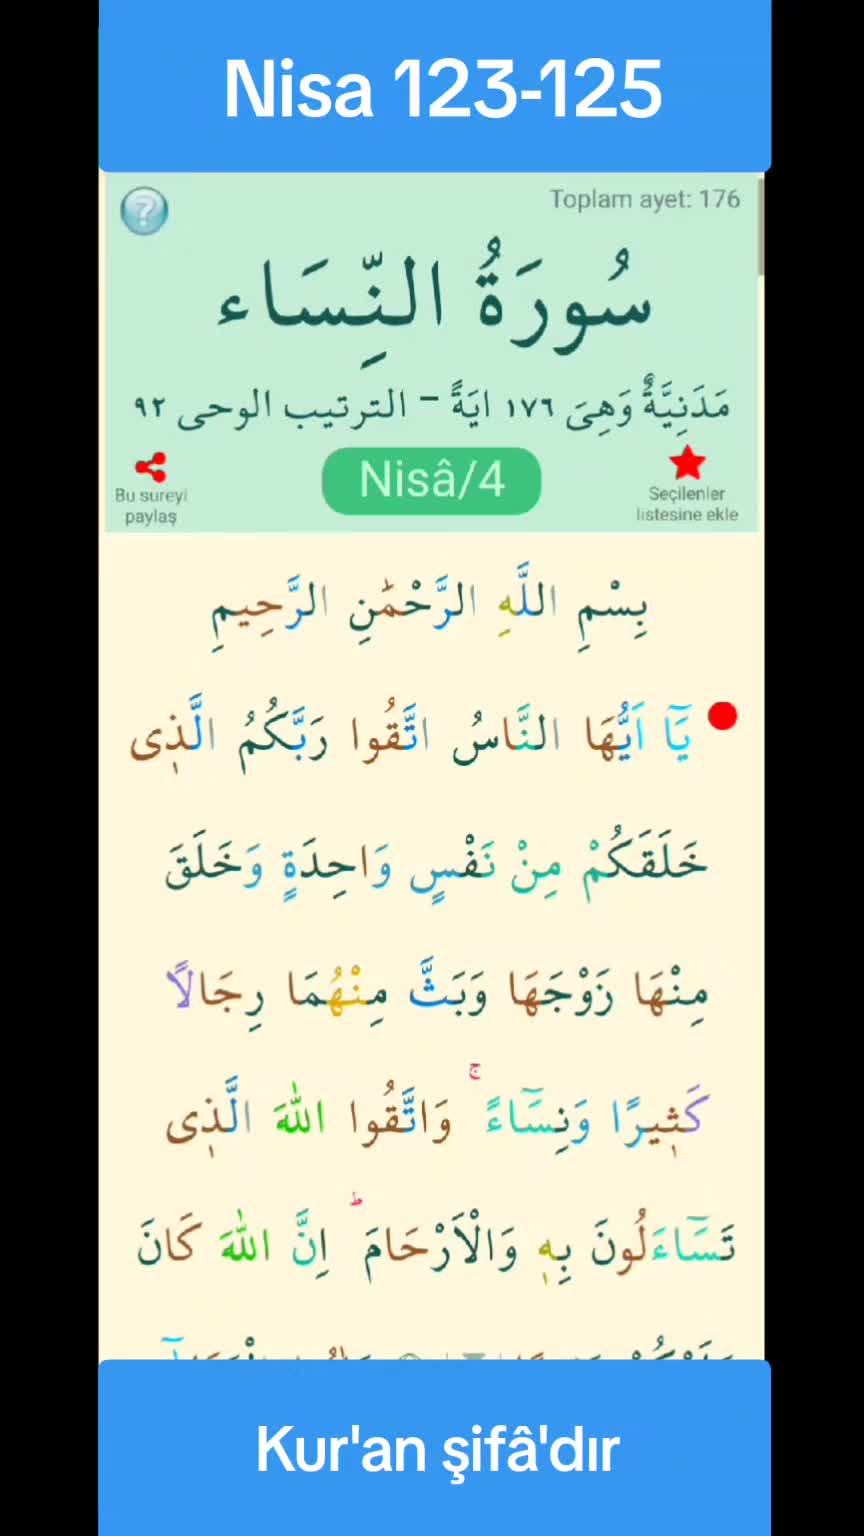 Nisa 123-125
Toplam ayet: 176
سُورَةُ النِّسَاء
مَدَنِيَّةٌ وَهِىَ ١٧٦ ايَةً - الترتيب الوحى ٩٢
Bu sureyi
paylaş
Nisâ/4
Seçilenler
listesine ekle
بِسْمِ اللَّهِ الرَّحْمٰنِ الرَّحِيمِ
يَٓا اَيُّهَا النَّاسُ اتَّقُوا رَبَّكُمُ الَّذ۪ى
خَلَقَكُمْ مِنْ نَفْسٍ وَاحِدَةٍ وَخَلَقَ
مِنْهَا زَوْجَهَا وَبَثَّ مِنْهُمَا رِجَالًا
كَث۪يرًا وَنِسَٓاءً ۚ وَاتَّقُوا اللّٰهَ الَّذ۪ى
تَسَٓاءَلُونَ بِه۪ وَالْاَرْحَامَ ۜ اِنَّ اللّٰهَ كَانَ
Kur'an şifâ'dır